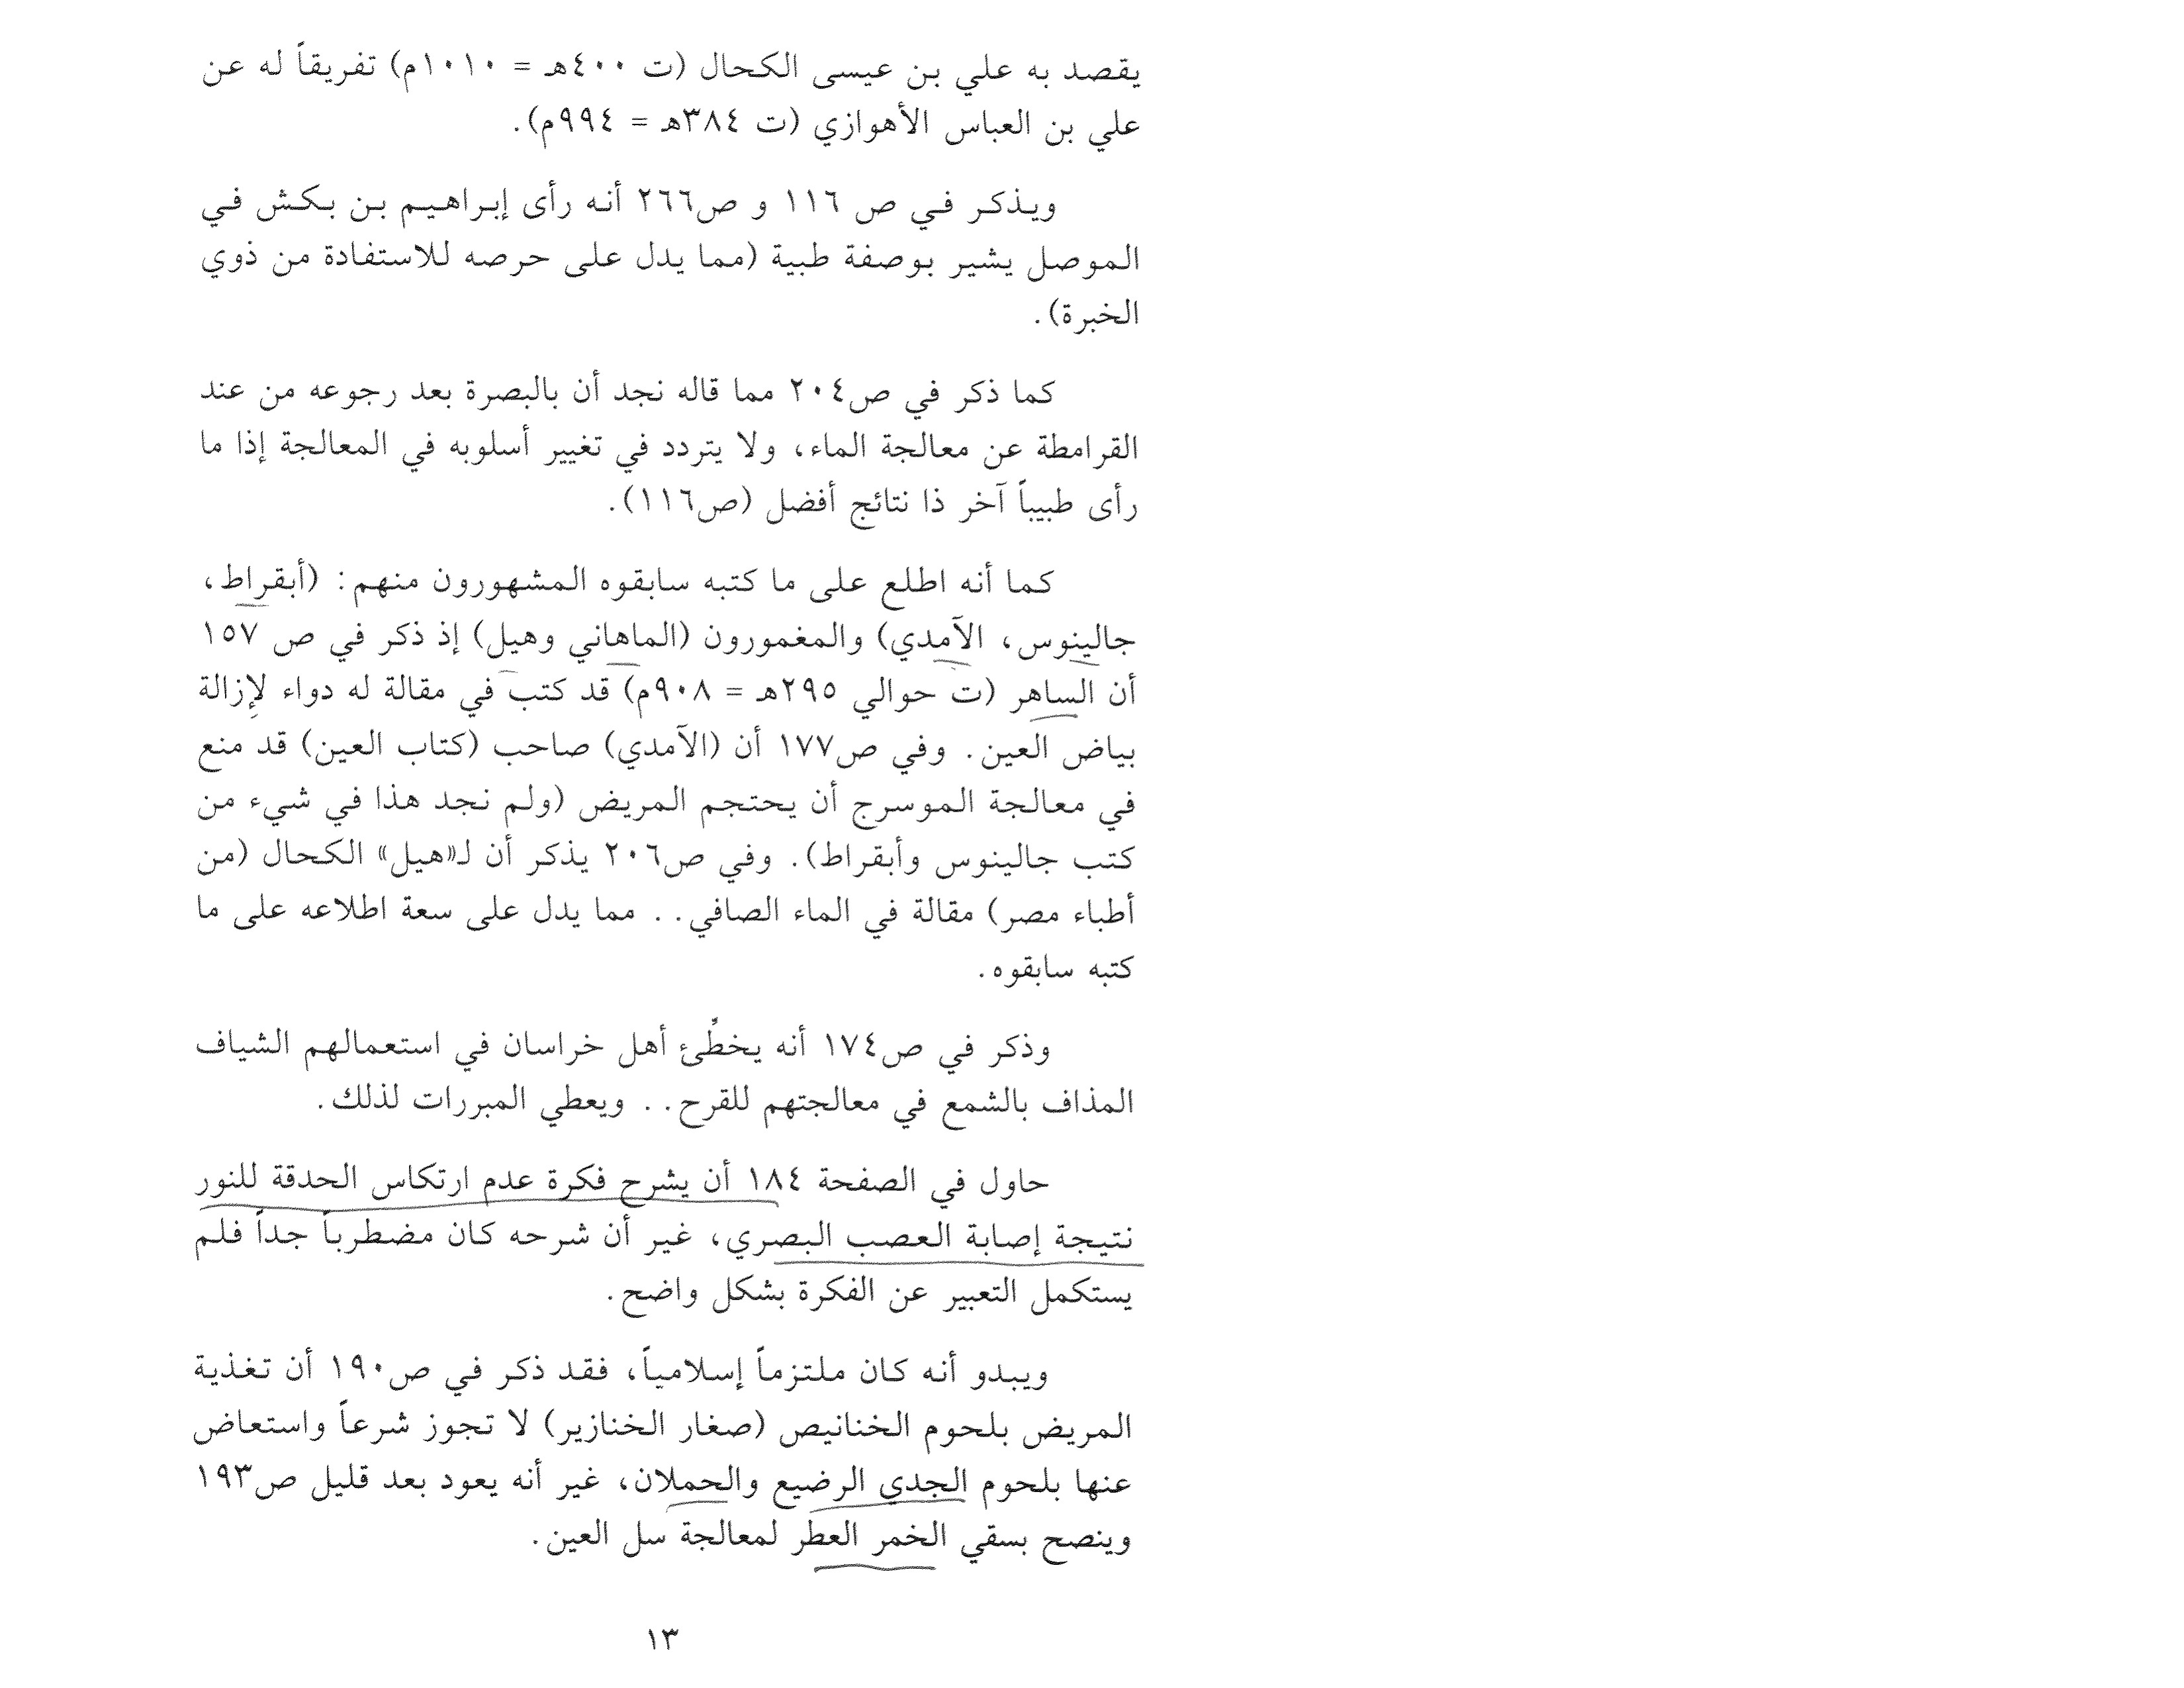 يقصد به علي بن عيسى الكحال (ت ٤٠٠هـ = ١٠١٠م) تفريقاً له عن
علي بن العباس الأهوازي (ت ٣٨٤هـ = ٩٩٤م).
ويذكر في ص ١١٦ و ص٢٦٦ أنه رأى إبراهيم بن بكش في
الموصل يشير بوصفة طبية (مما يدل على حرصه للاستفادة من ذوي
الخبرة).
كما ذكر في ص٢٠٤ مما قاله نجد أن بالبصرة بعد رجوعه من عند
القرامطة عن معالجة الماء، ولا يتردد في تغيير أسلوبه في المعالجة إذا ما
رأى طبيباً آخر ذا نتائج أفضل (ص١١٦).
كما أنه اطلع على ما كتبه سابقوه المشهورون منهم: (أبقراط،
جالينوس، الآمدي) والمغمورون (الماهاني وهيل) إذ ذكر في ص ١٥٧
أن الساهر (ت حوالي ٢٩٥هـ = ٩٠٨م) قد كتب في مقالة له دواء لإزالة
بياض العين. وفي ص١٧٧ أن (الآمدي) صاحب (كتاب العين) قد منع
في معالجة الموسرج أن يحتجم المريض (ولم نجد هذا في شيء من
كتب جالينوس وأبقراط). وفي ص٢٠٦ يذكر أن لـ«هيل» الكحال (من
أطباء مصر) مقالة في الماء الصافي.. مما يدل على سعة اطلاعه على ما
كتبه سابقوه.
وذكر في ص١٧٤ أنه يخطِّئ أهل خراسان في استعمالهم الشياف
المذاف بالشمع في معالجتهم للقرح.. ويعطي المبررات لذلك.
حاول في الصفحة ١٨٤ أن يشرح فكرة عدم ارتكاس الحدقة للنور
نتيجة إصابة العصب البصري، غير أن شرحه كان مضطرباً جداً فلم
يستكمل التعبير عن الفكرة بشكل واضح.
ويبدو أنه كان ملتزماً إسلامياً، فقد ذكر في ص١٩٠ أن تغذية
المريض بلحوم الخنانيص (صغار الخنازير) لا تجوز شرعاً واستعاض
عنها بلحوم الجدي الرضيع والحملان، غير أنه يعود بعد قليل ص١٩٣
وينصح بسقي الخمر العطر لمعالجة سل العين.
١٣